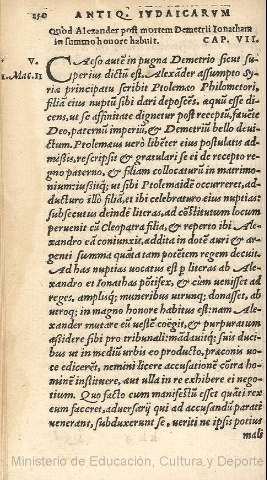 250 ANTIQ. IVDAICARVM
Quòd Alexander post mortem Demetrii Ionatham
in summo honore habuit. CAP. VII.
V.
1. Mac. 11
CAeso autē in pugna Demetrio sicut su
perius dictū est. Alexāder assumpto Sy
riæ principatu scribit Ptolemæo Philometori,
filiā eius nuptiū sibi dari deposcēs. æquū esse di
cens, ut se affinitate dignetur post receptū, fauēte
Deo, paternū imperiū, & Demetriū bello deuic
tum. Ptolemæus uerò libēter eius postulatis ad
missis, rescripsit & gratulari se ei de recepto re
gno paterno, & filiam collocaturū in matrimo
nium: iussitq; ut sibi Ptolemaidē occurreret, ad
ducturo illò filiā, et ibi celebraturo eius nuptias:
subsecutus deinde literas, ad cōstitutum locum
peruenit cū Cleopatra filia, & reperto ibi Ale-
xandro eā coniunxit, addita in dotē auri & ar
genti summa quāta tam potētem regem decuit.
Ad has nuptias uocatus est p literas ab Ale
xandro et Ionathas pōtifex, & cùm uenisset ad
reges, ampliq; muneribus utrunq; donasset, ab
utroq; in magno honore habitus est: nam Alex
ander mutare eū uestē coëgit, & purpuratum
assidere sibi pro tribunali: mādauitq; suis duci
bus ut in mediū urbis eo producto, præconis uo
ce edicerēt, nemini licere accusationē cōtra ho-
minē instituere, aut ulla in re exhibere ei nego-
tium. Quo facto cum manifestū esset quāti rex
eum faceret, aduersarij qui ad accusandū parati
uenerant, subduxerunt se, ueriti ne ipsis potius
mali
Ministerio de Educación, Cultura y Deporte